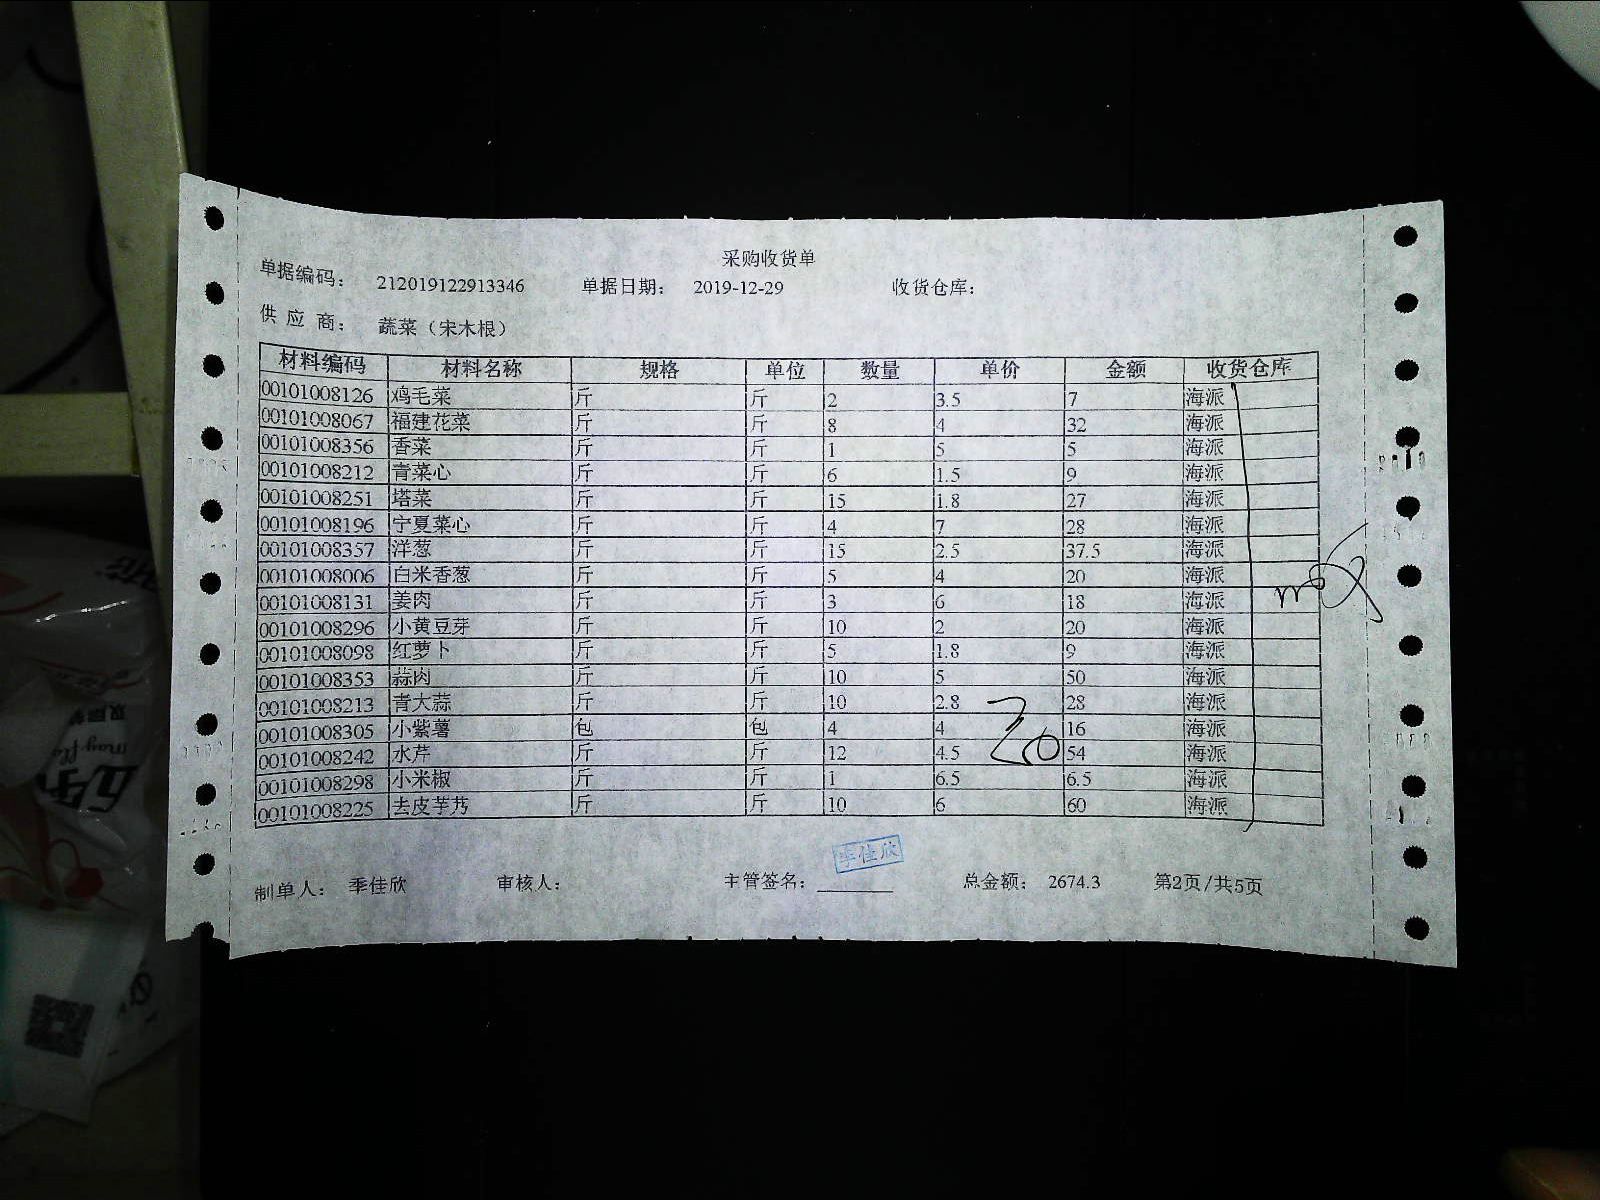 采购收货单
单据编码： 212019122913346 单据日期： 2019-12-29 收货仓库：
供 应 商： 蔬菜（宋木根）
材料编码 材料名称 规格 单位 数量 单价 金额 收货仓库
00101008126 鸡毛菜 斤 斤 2 3.5 7 海派
00101008067 福建花菜 斤 斤 8 4 32 海派
00101008356 香菜 斤 斤 1 5 5 海派
00101008212 青菜心 斤 斤 6 1.5 9 海派
00101008251 塔菜 斤 斤 15 1.8 27 海派
00101008196 宁夏菜心 斤 斤 4 7 28 海派
00101008357 洋葱 斤 斤 15 2.5 37.5 海派
00101008006 白米香葱 斤 斤 5 4 20 海派
00101008131 姜肉 斤 斤 3 6 18 海派
00101008296 小黄豆芽 斤 斤 10 2 20 海派
00101008098 红萝卜 斤 斤 5 1.8 9 海派
00101008353 蒜肉 斤 斤 10 5 50 海派
00101008213 青大蒜 斤 斤 10 2.8 28 海派
00101008305 小紫薯 包 包 4 4 16 海派
00101008242 水芹 斤 斤 12 4.5 54 海派
00101008298 小米椒 斤 斤 1 6.5 6.5 海派
00101008225 去皮芋艿 斤 斤 10 6 60 海派
季佳欣
制单人： 季佳欣 审核人： 主管签名： 总金额： 2674.3 第2页/共5页